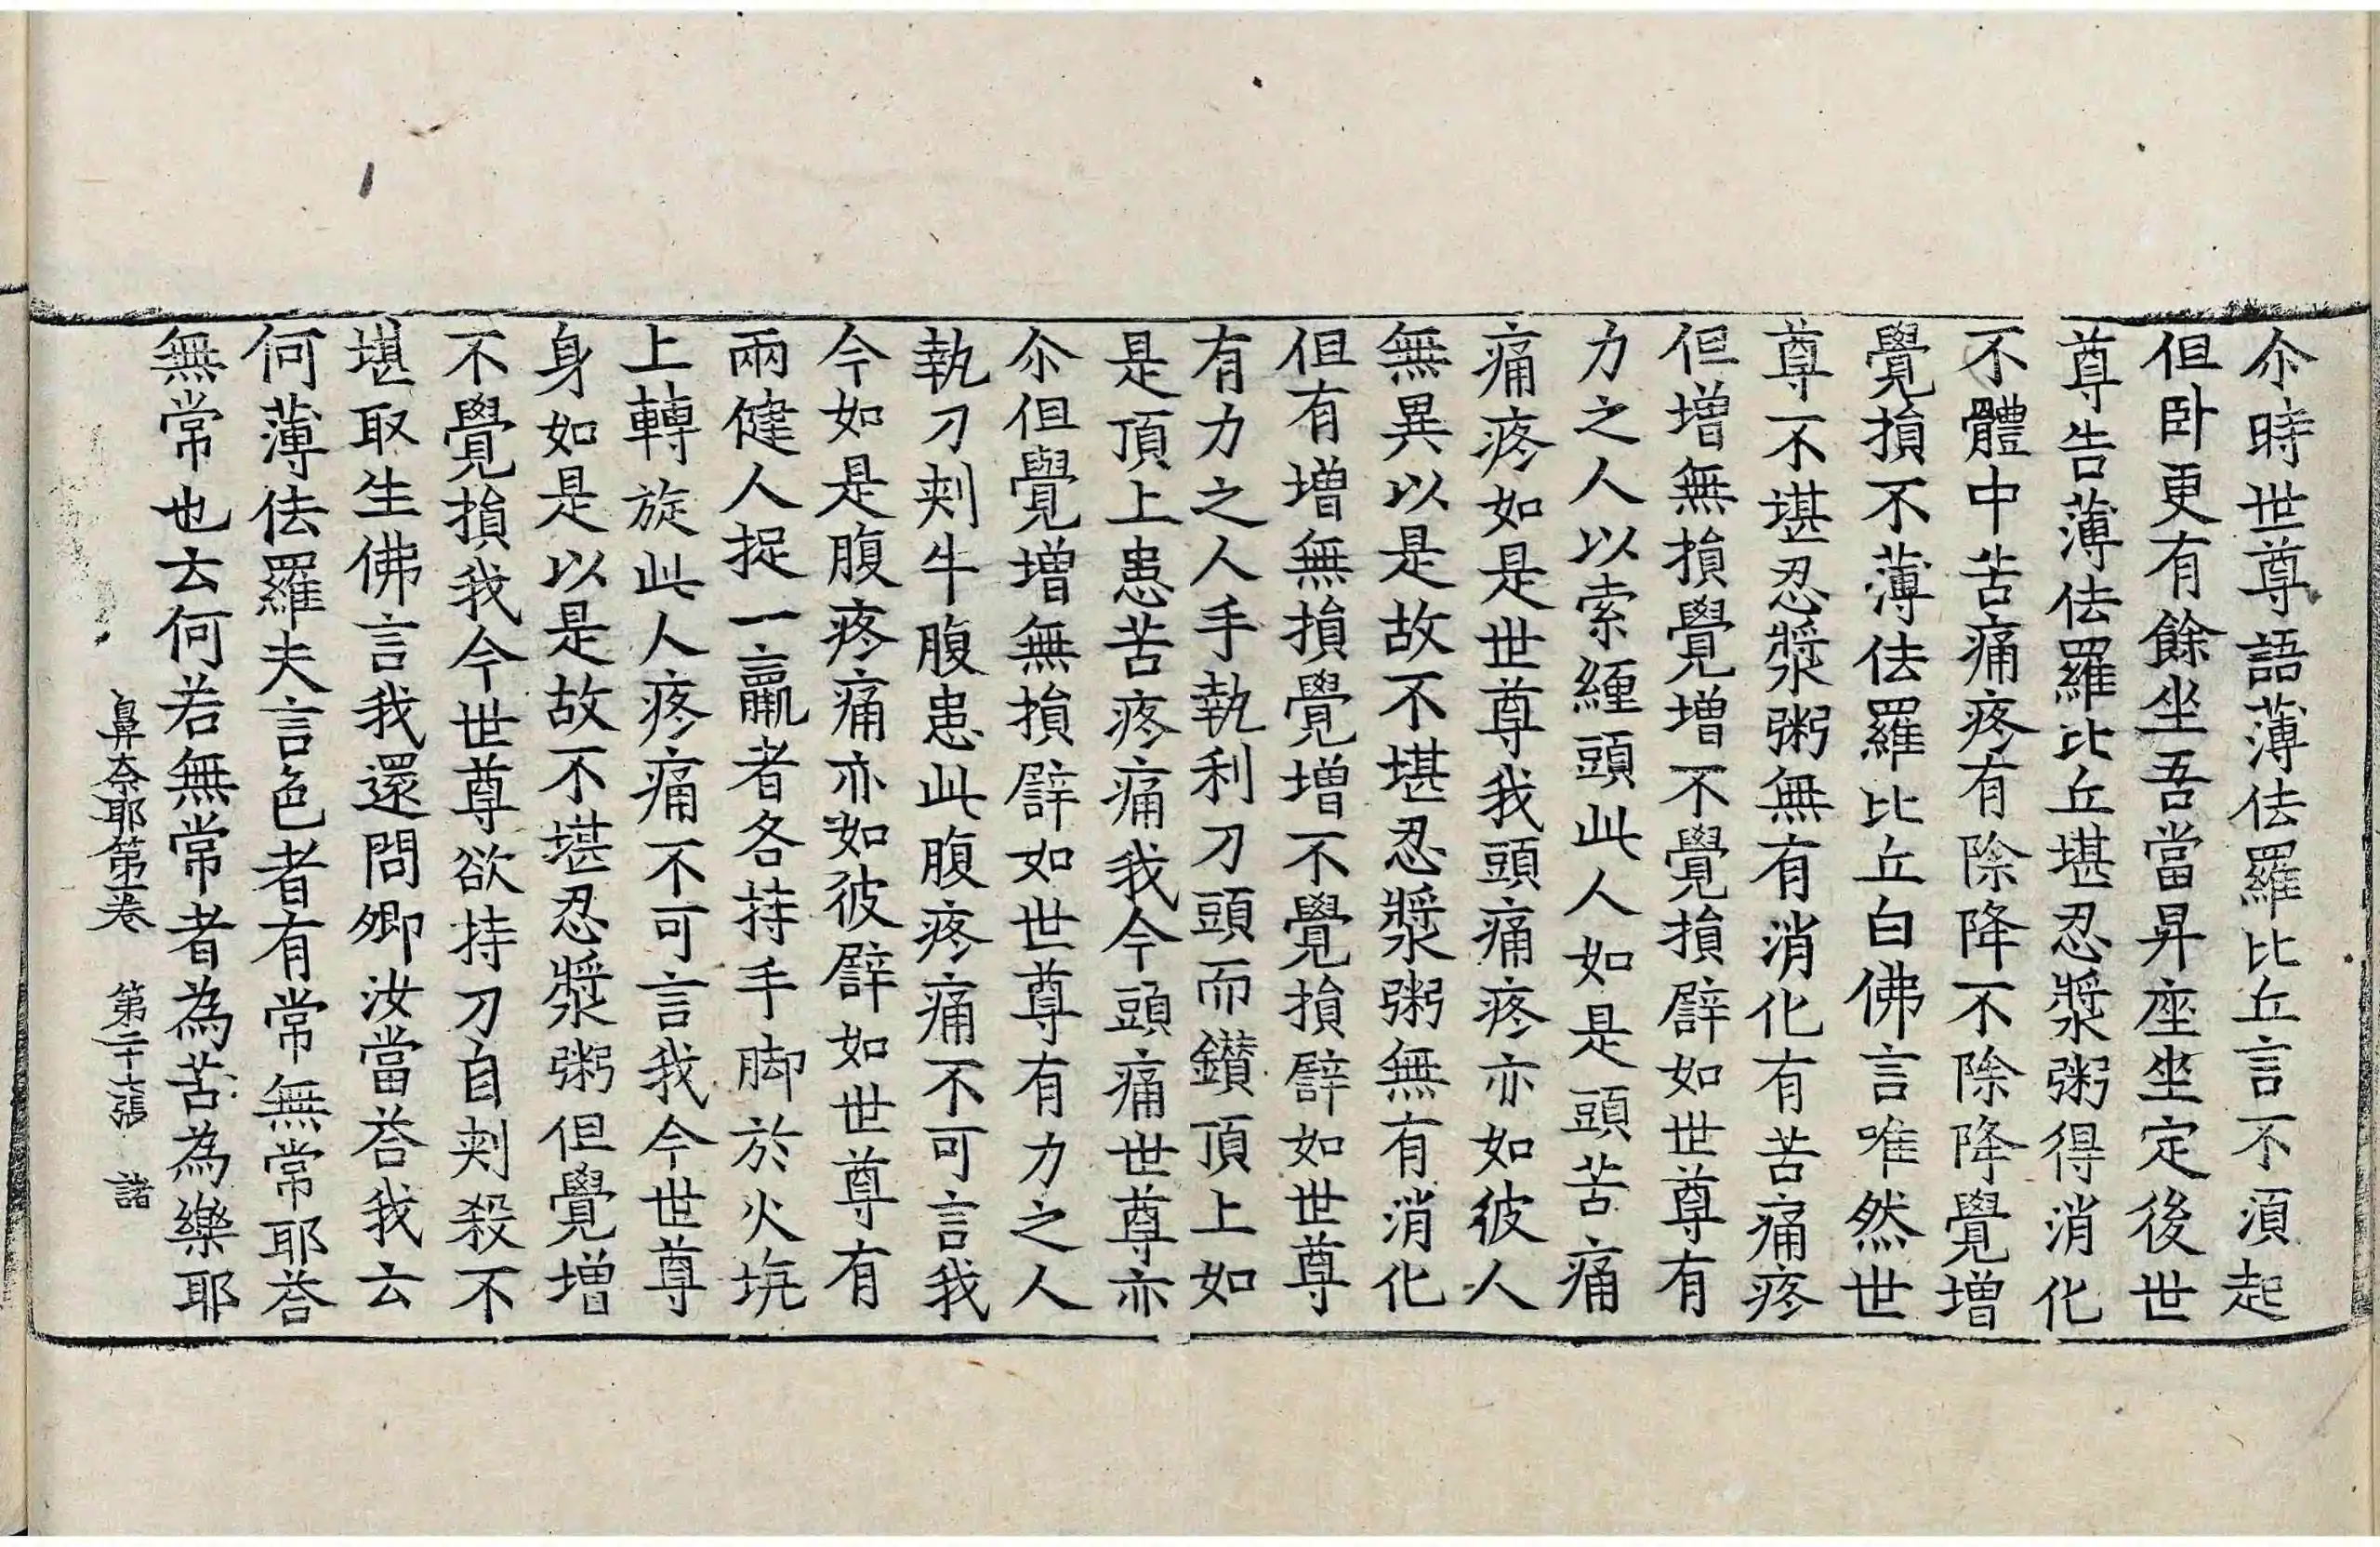 尒時世尊語薄佉羅比丘言不湏起
但卧更有餘坐吾當昇座坐定後世
尊告薄佉羅比丘堪忍漿粥得消化
不體中苦痛疼有除降不除降覺增
覺損不薄佉羅比丘白佛言唯然世
尊不堪忍漿粥無有消化有苦痛疼
但增無損覺增不覺損譬如世尊有
力之人以索縺頭此人如是頭苦痛
痛疼如是世尊我頭痛疼亦如彼人
無異以是故不堪忍漿粥無有消化
但有增無損覺增不覺損譬如世尊
有力之人手執利刀頭而鑚頂上如
是頂上患苦疼痛我今頭痛世尊亦
尒但覺增無損譬如世尊有力之人
執刀刾牛腹患此腹疼痛不可言我
今如是腹疼痛亦如彼譬如世尊有
兩健人捉一羸者各持手脚於火坑
上轉旋此人疼痛不可言我今世尊
身如是以是故不堪忍漿粥但覺增
不覺損我今世尊欲持刀自刾殺不
堪取生佛言我還問卿汝當荅我云
何薄佉羅夫言色者有常無常耶荅
無常也云何若無常者為苦為樂耶
鼻奈耶第五卷　第二十六張　諸